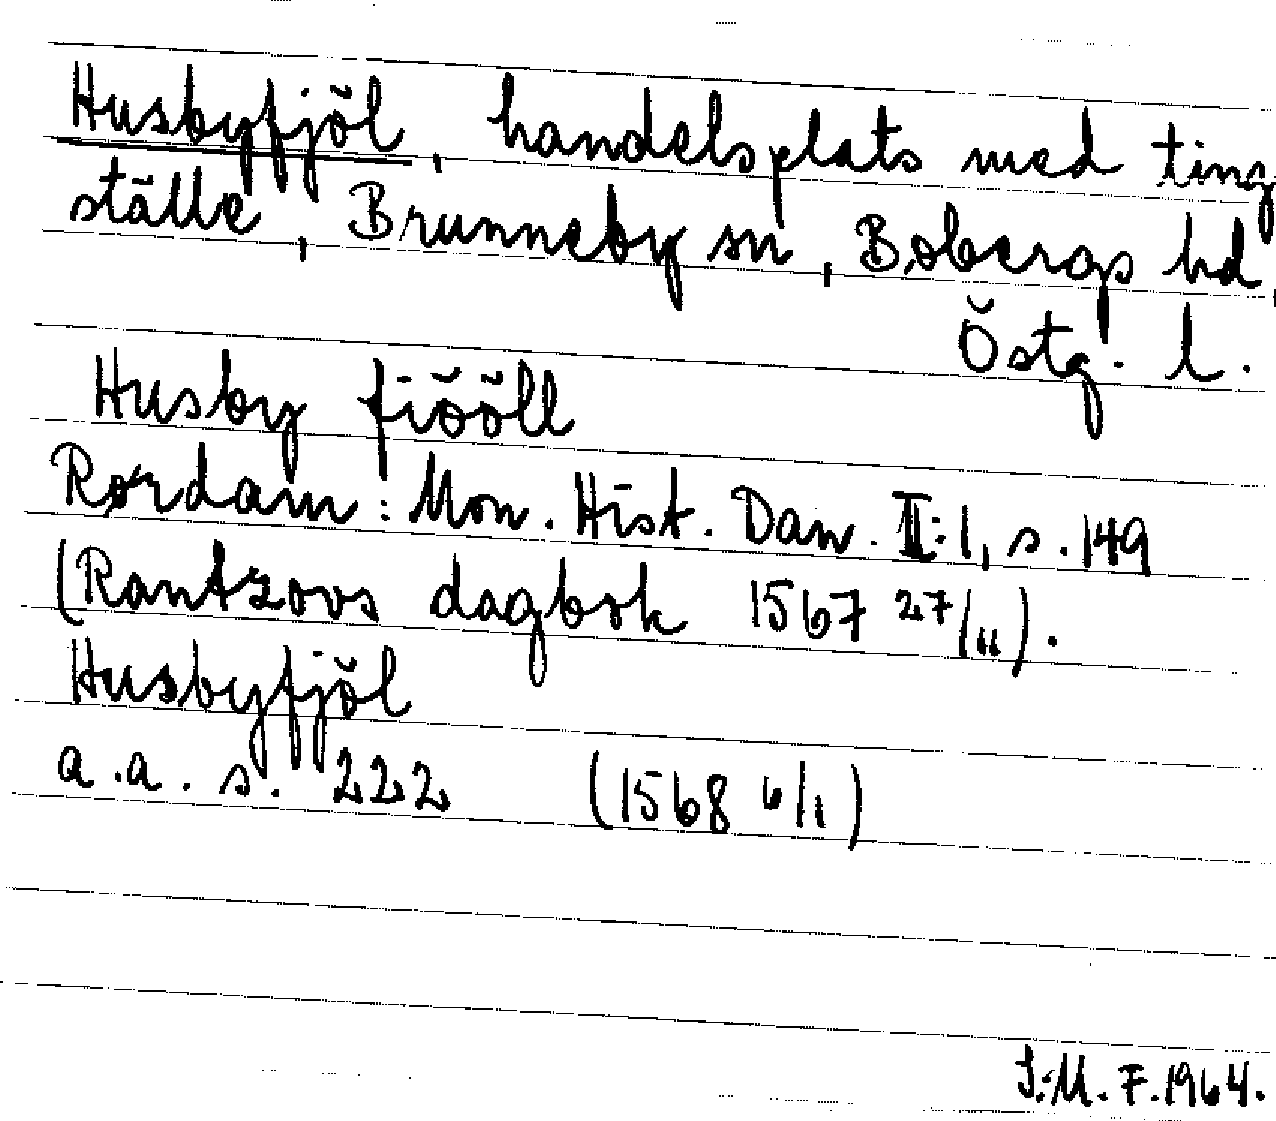 Husbyfjöl, handelsplats med ting
ställe, Brunneby sn, Bobergs hd,
Östg. l.
Husby fiööll
Rørdam: Mon. Hist. Dan. II:1, s. 149
(Rantzovs dagbok 1567 27/11).
Husbyfjöl
a.a. s. 222 (1568 6/1)
I.M.F. 1964.